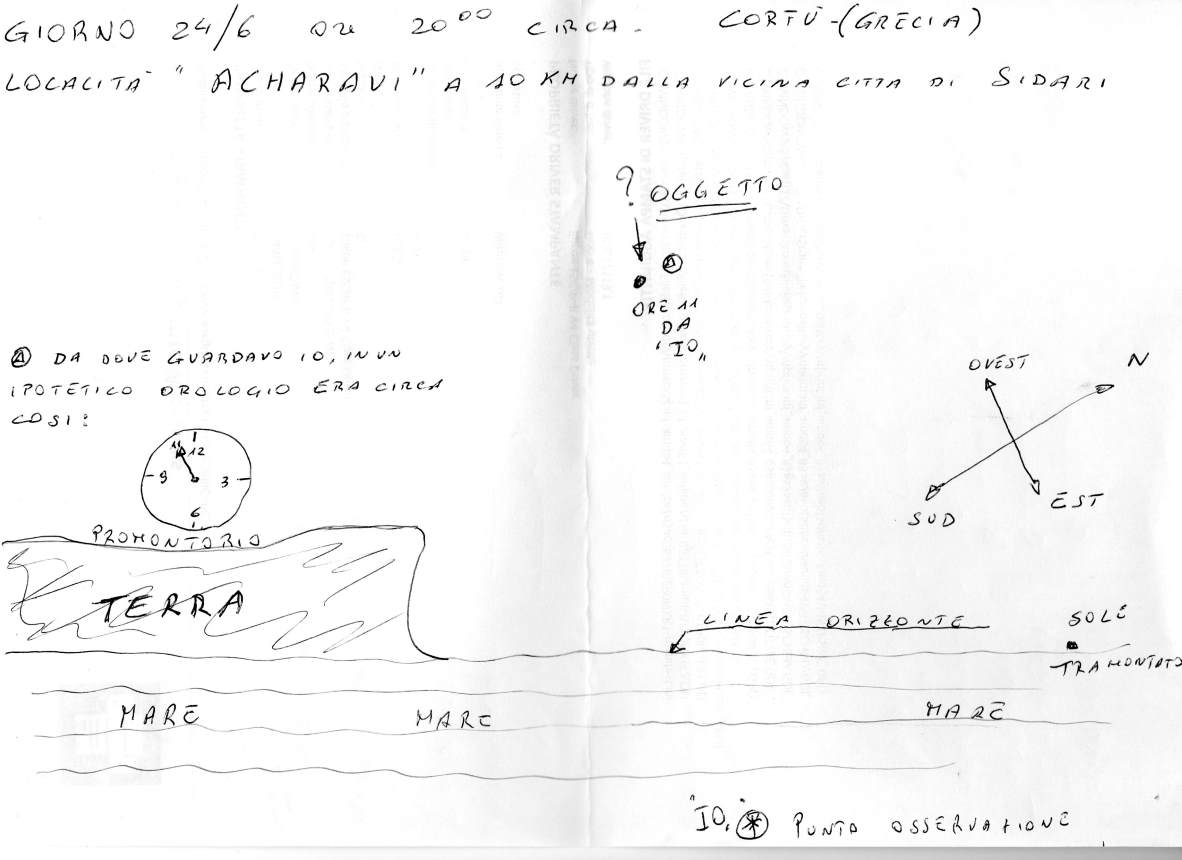 GIORNO 24/6 ORE 20⁰⁰ CIRCA. CORFÙ-(GRECIA)
LOCALITÀ "ACHARAVI" A 10 KM DALLA VICINA CITTÀ DI SIDARI
? OGGETTO
A
ORE 11
DA
"IO"
A DA DOVE GUARDAVO IO, IN UN
IPOTETICO OROLOGIO ERA CIRCA
COSI:
11 12
9 3
6
OVEST N
SUD EST
PROMONTORIO
TERRA
LINEA ORIZZONTE
SOLE
TRAMONTATO
MARE MARE MARE
"IO." * PUNTO OSSERVAZIONE